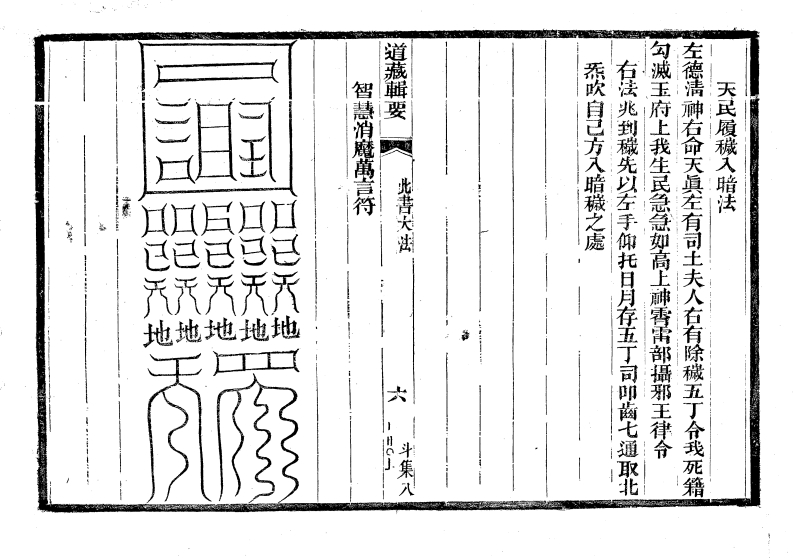 天民履穢入暗法
左德淸神右命天眞左有司土夫人右有除穢五丁令我死籍
勾滅玉府上我生民急急如高上神霄雷部攝邪王律令
右法兆到穢先以左手仰托日月存五丁司叩齒七通取北
炁吹自己方入暗穢之處
道藏輯要
此書大法
六
斗集八
智慧消魔萬言符
地地地地地